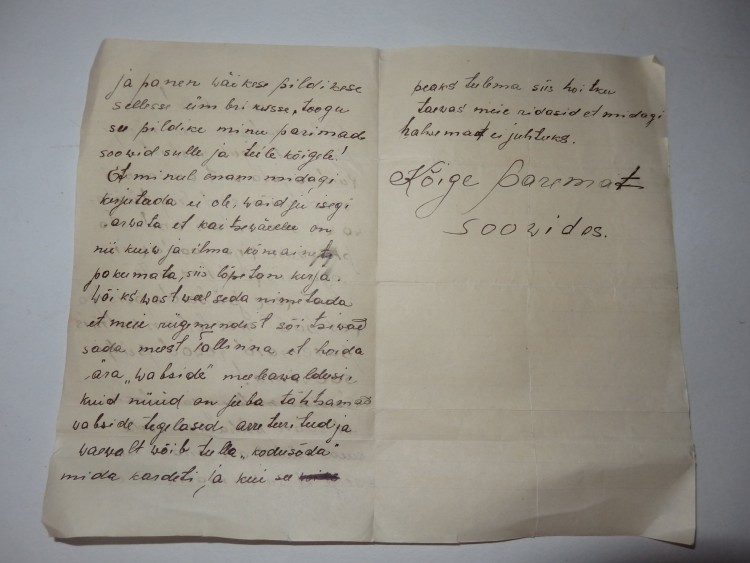 ja panen wäikese pildikese
sellesse ümbrikusse, toogu
see pildike minu parimad
soowid sulle ja teile kõigile!
Et minul enam midagi
kirjutada ei ole, waid ju isegi
arwata et kaitsewäeelu on
nii kuiw ja ilma kõneainet
pakumata, siis lõpetan kirja.
Wõiks wast weel seda nimetada
et meie rügemendist sõitsiwad
sada meest Tallinna et hoida
ära „wabside" meeleawaldusi,
kuid nüüd on juba tähtsamad
wabside tegelased arreteeritud ja
waewalt wõib tulla „kodusõda"
mida kardeti, ja kui see
peaks tulema siis hoitku
taewas meie ridasid et midagi
halwemat ei juhtuks.
Kõige paremat
soowides.